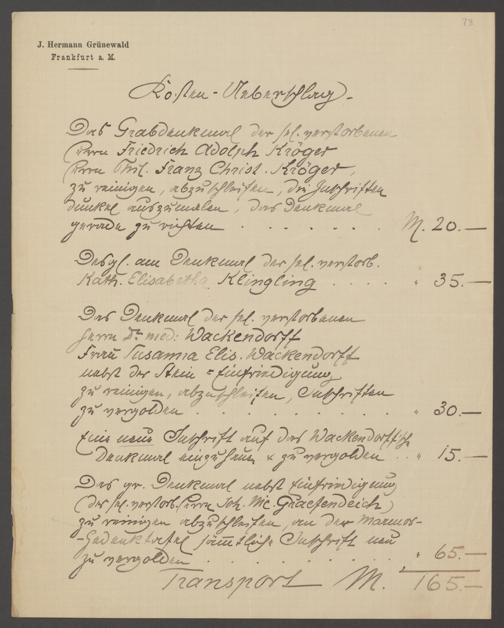 78
J. Hermann Grünewald
Frankfurt a. M.
Kosten-Ueberschlag
Das Grabdenkmal der sel. verstorbenen
Herrn Friedrich Adolph Kröger
Herrn Phil. Franz Christ. Kröger,
zu reinigen, abzuschleifen, die Inschriften
dunkel auszumalen, das Denkmal
gerade zu richten . . . . . . . M. 20.—
Desgl. am Denkmal der sel. verstorb.
Kath. Elisabetha Klingling . . . . " 35.—
Das Denkmal der sel. verstorbenen
Herrn Dr. med: Wackendorff
Frau Susanna Elis. Wackendorff
nebst der Stein-Einfriedigung
zu reinigen, abzuschleifen, Inschriften
zu vergolden . . . . . . . . " 30.—
Eine neue Inschrift auf das Wackendorff'sche
Denkmal einzuhauen & zu vergolden . . " 15.—
Das gr. Denkmal nebst Einfriedigung
(der sel. verstorb. Herrn Joh. Mc. Graefendeich)
zu reinigen abzuschleifen, an der Marmor-
-Gedenktafel sämtliche Inschrift neu
zu vergolden . . . . . . . . " 65.—
Transport M. 165.—